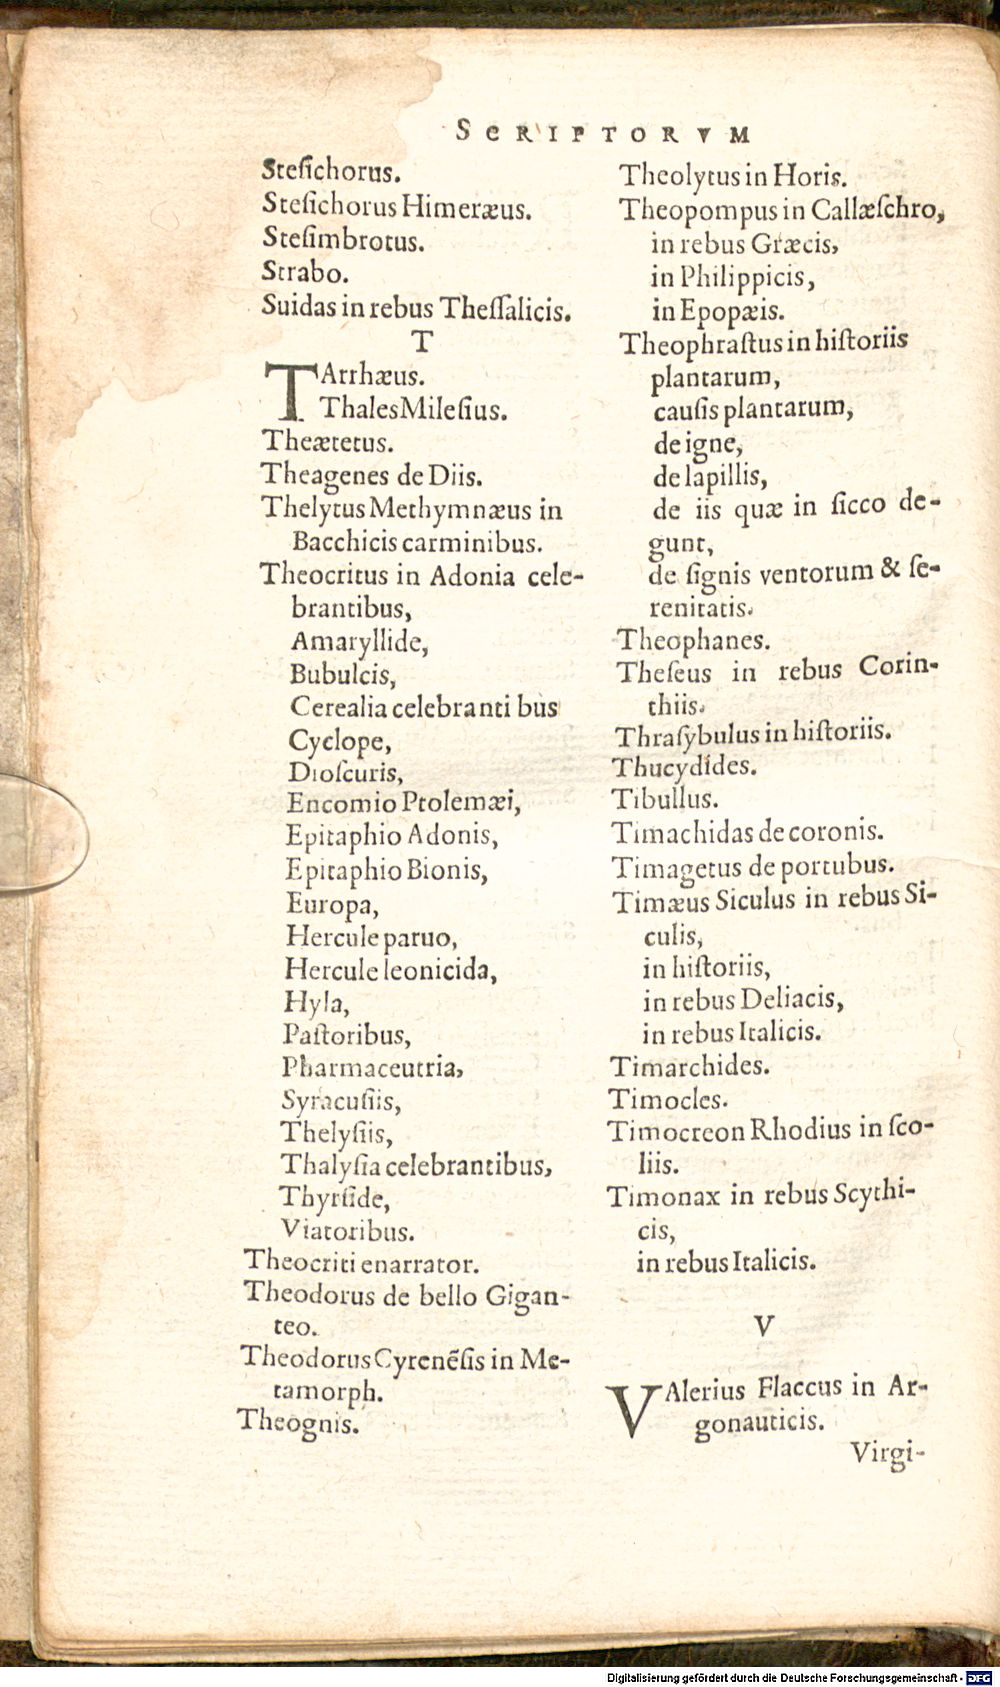 SCRIPTORVM
Steſichorus.
Steſichorus Himeræus.
Steſimbrotus.
Strabo.
Suidas in rebus Theſſalicis.
T
TArrhæus.
Thales Mileſius.
Theætetus.
Theagenes de Diis.
Thelytus Methymnæus in
Bacchicis carminibus.
Theocritus in Adonia cele-
brantibus,
Amaryllide,
Bubulcis,
Cerealia celebranti bus
Cyclope,
Dioſcuris,
Encomio Ptolemæi,
Epitaphio Adonis,
Epitaphio Bionis,
Europa,
Hercule paruo,
Hercule leonicida,
Hyla,
Paſtoribus,
Pharmaceutria,
Syracuſiis,
Thelyſiis,
Thalyſia celebrantibus,
Thyrſide,
Viatoribus.
Theocriti enarrator.
Theodorus de bello Gigan-
teo.
Theodorus Cyrenẽſis in Me-
tamorph.
Theognis.
Theolytus in Horis.
Theopompus in Callæſchro,
in rebus Græcis,
in Philippicis,
in Epopæis.
Theophraſtus in hiſtoriis
plantarum,
cauſis plantarum,
de igne,
de lapillis,
de iis quæ in ſicco de-
gunt,
de ſignis ventorum & ſe-
renitatis.
Theophanes.
Theſeus in rebus Corin-
thiis.
Thraſybulus in hiſtoriis.
Thucydides.
Tibullus.
Timachidas de coronis.
Timagetus de portubus.
Timæus Siculus in rebus Si-
culis,
in hiſtoriis,
in rebus Deliacis,
in rebus Italicis.
Timarchides.
Timocles.
Timocreon Rhodius in ſco-
liis.
Timonax in rebus Scythi-
cis,
in rebus Italicis.
V
VAlerius Flaccus in Ar-
gonauticis.
Virgi-
Digitalisierung gefördert durch die Deutsche Forschungsgemeinschaft - DFG